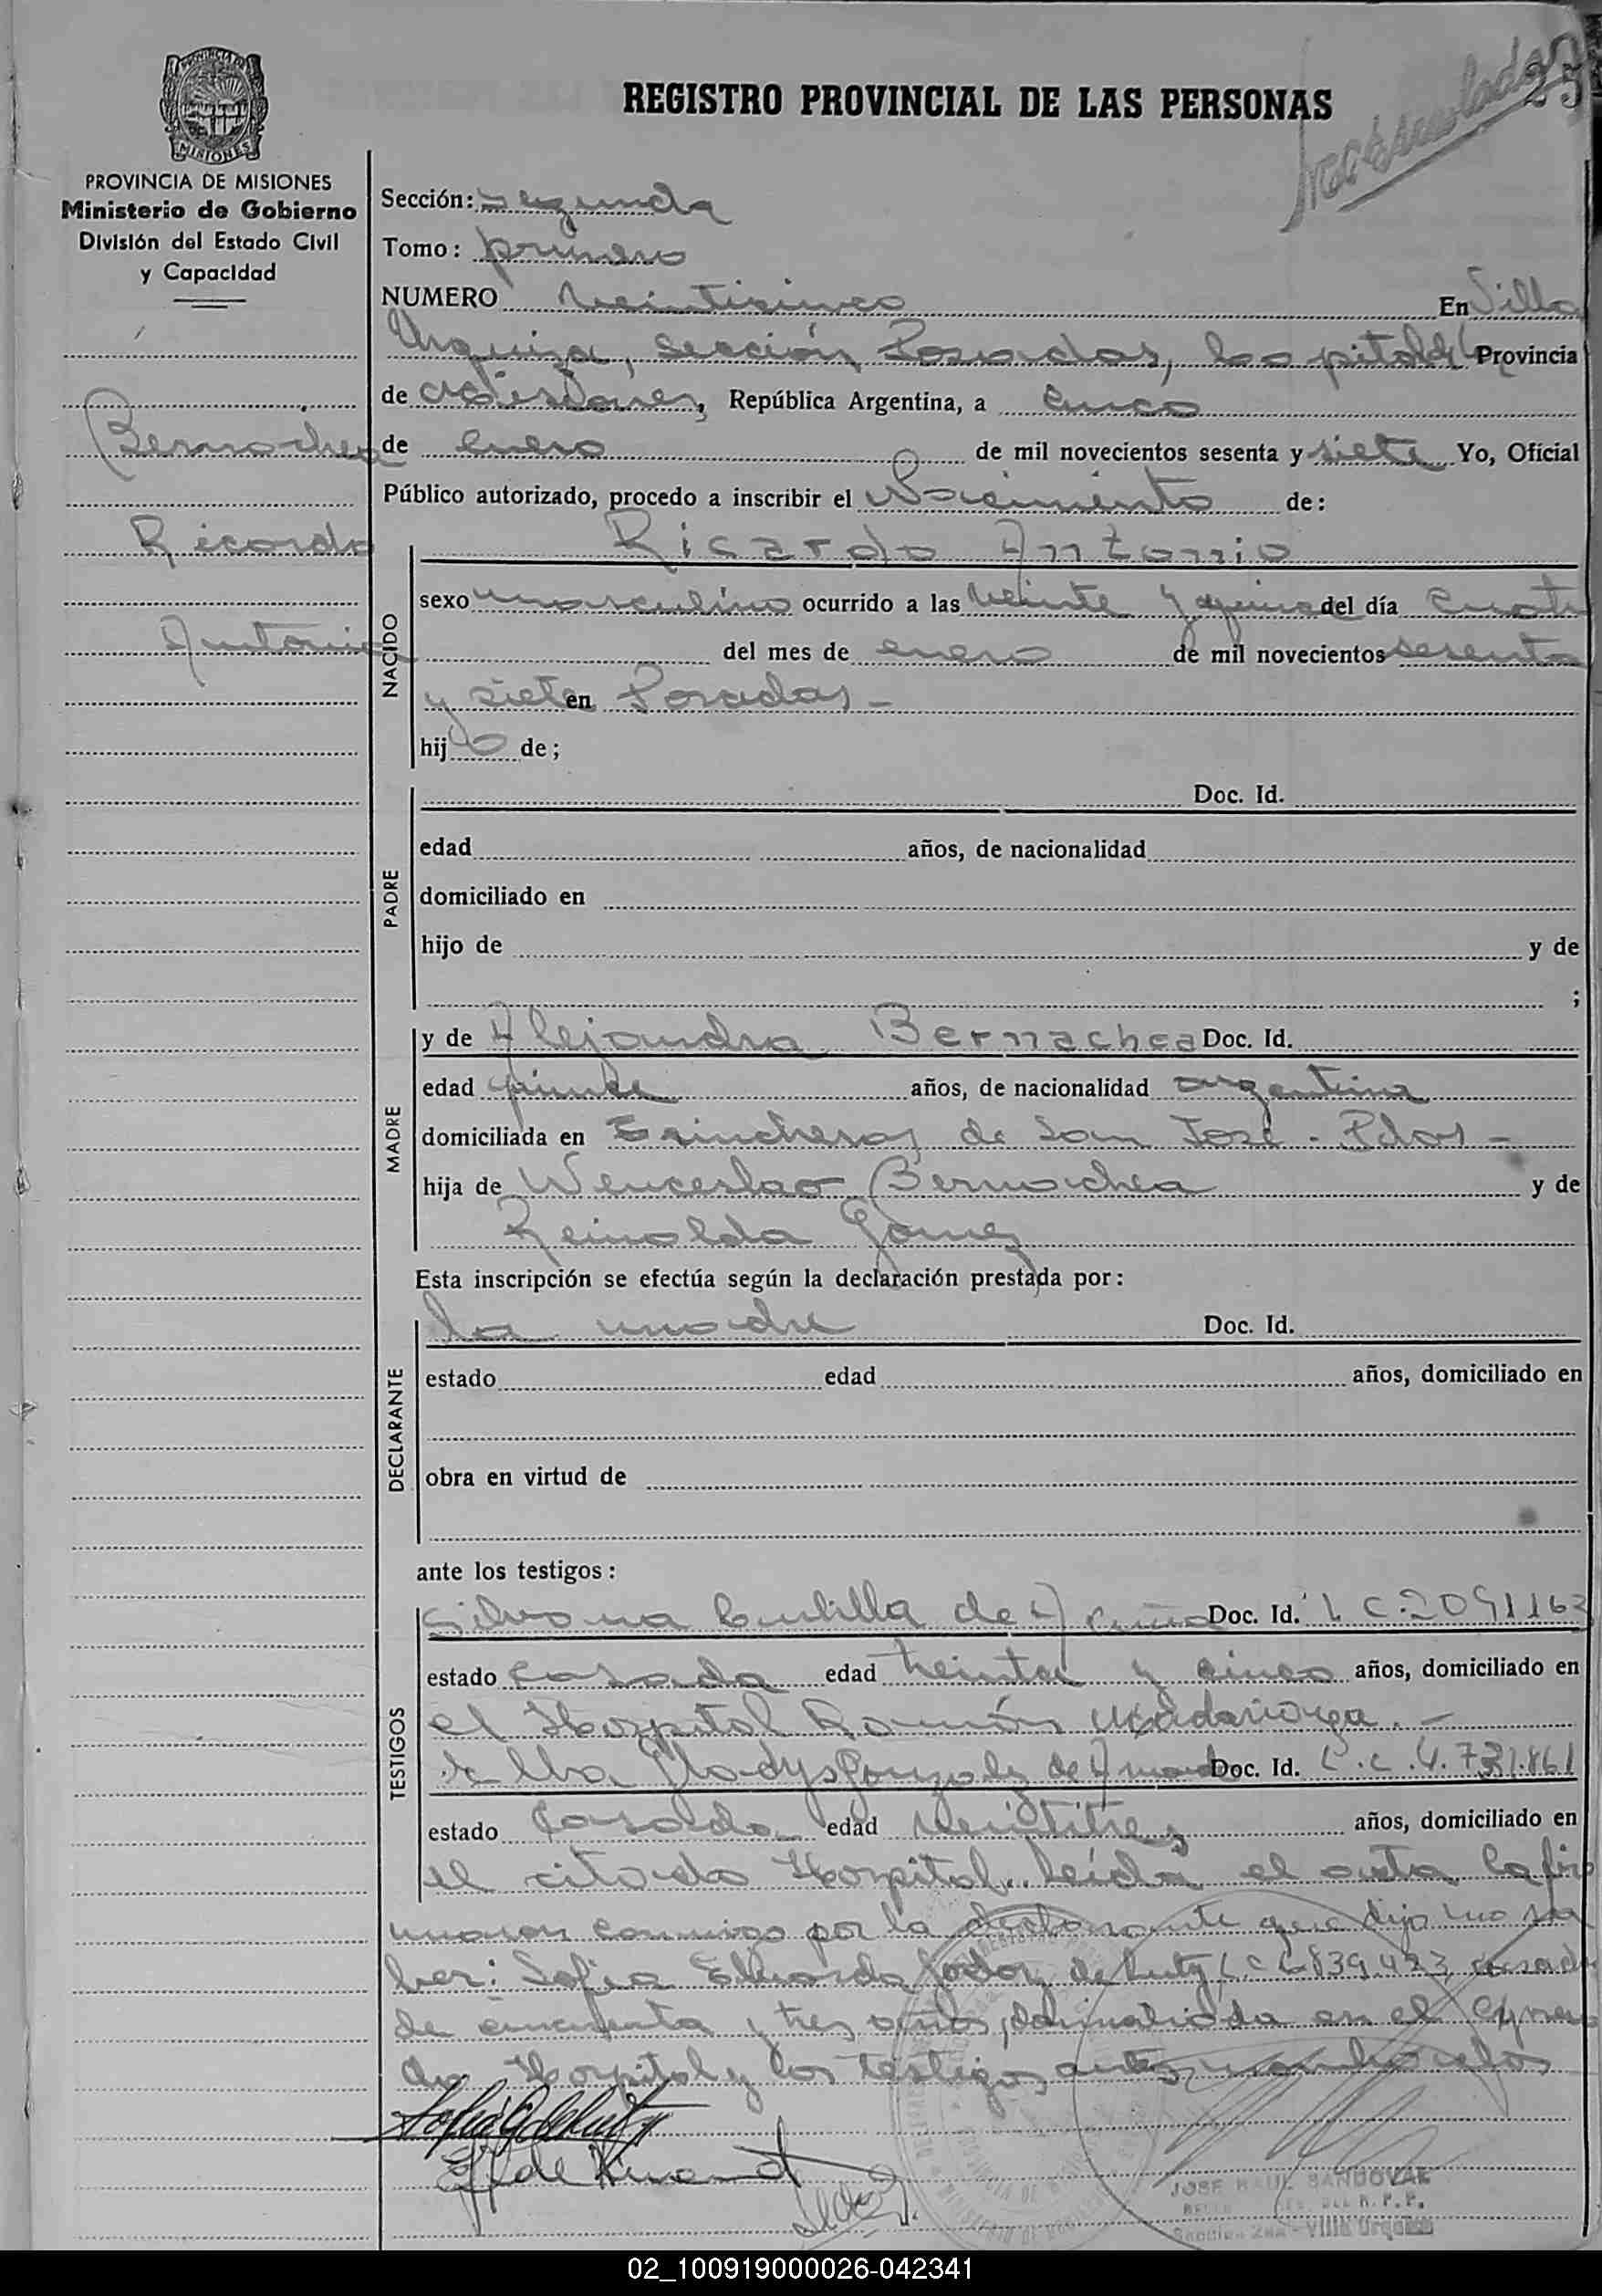 25
REGISTRO PROVINCIAL DE LAS PERSONAS
PROVINCIA DE MISIONES
MISIONES
PROVINCIA DE MISIONES
Ministerio de Gobierno
División del Estado Civil
y Capacidad
Bernachea
Ricardo
Antonio
Sección: Segunda
Tomo: primero
NUMERO veinticinco En Villa
Urquiza, sección Posadas, hospital del Provincia
de Misiones, República Argentina, a cinco
de enero de mil novecientos sesenta y siete Yo, Oficial
Público autorizado, procedo a inscribir el Nacimiento de:
NACIDO
Ricardo Antonio
sexo masculino ocurrido a las veinte y quince del día cuatro
del mes de enero de mil novecientos sesenta
y siete en Posadas -
hijo de;
PADRE
Doc. Id.
edad años, de nacionalidad
domiciliado en
hijo de y de
;
MADRE
y de Alejandra Bernachea Doc. Id.
edad quince años, de nacionalidad argentina
domiciliada en Trincheras de San José - Pdas -
hija de Wenceslao Bernachea y de
Reinalda Gomez
Esta inscripción se efectúa según la declaración prestada por:
DECLARANTE
la madre Doc. Id.
estado edad años, domiciliado en
obra en virtud de
ante los testigos:
TESTIGOS
Silvana de Acuña Doc. Id. L C. 2091163
estado casada edad treinta y cinco años, domiciliado en
el Hospital Ramón Madariaga. -
Elba Gladys Gonzalez de Doc. Id. L.C. 4.731.861
estado casada edad veintitres años, domiciliado en
el citado Hospital. Leída el acta la fir
maron conmigo por la declarante que dijo no sa
ber: Sofia Eduarda de Luty L C casada
de cincuenta y tres años, domiciliada en el expresa
do Hospital y los testigos antes mencionados
JOSE RAUL SANDOVAL
DEL R. P. P.
Sección 2da - Villa Urquiza
02_100919000026-042341